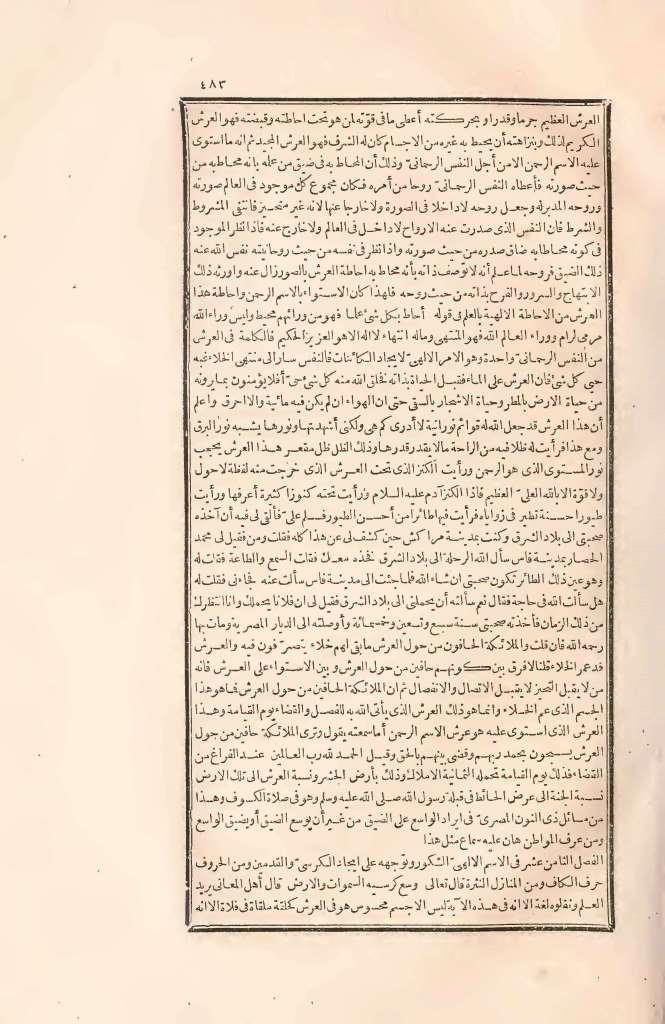 ٤٨٣
العرش العظيم جرما وقدرا وبحركته أعطى ما فى قوته لمن هو تحت احاطته وقبضته فهو العرش
الكريم لذلك وبنزاهته أن يحيط به غيره من الاجسام كان له الشرف فهو العرش المجيد ثم انه ما استوى
عليه الاسم الرحمن الا من أجل النفس الرحمانى وذلك أن المحاط به فى ضيق من علمه بانه محاط به من
حيث صورته فأعطاه النفس الرحمانى روحا من أمره فكان مجموع كل موجود فى العالم صورته
وروحه المدبر له وجعل روحه لا داخلا فى الصورة ولا خارجا عنها لانه غير متحيز فانتفى المشروط
والشرط فان النفس الذى صدرت عنه الارواح لا داخل فى العالم ولا خارج عنه فاذا نظر الموجود
فى كونه محاطا به ضاق صدره من حيث صورته واذا نظر فى نفسه من حيث روحانيته نفس الله عنه
ذلك الضيق فروحه لما علم أنه لا توصف ذاته بأنه محاط به احاطة العرش بالصور زال عنه وأورثه ذلك
الابتهاج والسرور والفرح بذاته من حيث روحه فلهذا كان الاستواء بالاسم الرحمن واحاطة هذا
العرش من الاحاطة الالهية بالعلم فى قوله أحاط بكل شئ علما فهو من ورائهم محيط وليس وراء الله
مرمى لرام ووراء العالم الله فهو المنتهى وماله انتهاء لا اله الا هو العزيز الحكيم فالكلمة فى العرش
من النفس الرحمانى واحدة وهو الامر الالهى لايجاد الكائنات فالنفس سار الى منتهى الخلاء فبه
حيى كل شئ فان العرش على الماء فقبل الحياة بذاته فخلق الله منه كل شئ حى أفلا يؤمنون بما يرونه
من حياة الارض بالمطر وحياة الاشجار بالسقى حتى ان الهواء ان لم يكن فيه مائية والا احرق واعلم
أن هذا العرش قد جعل الله له قوائم نورانية لا أدرى كم هى ولكنى أشهدتها ونورها يشبه نور البرق
ومع هذا فرأيت له ظلا فيه من الراحة ما لا يقدر قدرها وذلك الظل ظل مقعر هذا العرش يحجب
نور المستوى الذى هو الرحمن ورأيت الكنز الذى تحت العرش الذى خرجت منه لفظة لا حول
ولا قوة الا بالله العلى العظيم فاذا الكنز آدم عليه السلام ورأيت تحته كنوزا كثيرة أعرفها ورأيت
طيورا حسنة تطير فى زواياه فرأيت فيها طائرا من أحسن الطيور فسلم على فألقى لى فيه أن آخذه
صحبتى الى بلاد الشرق وكنت بمدينة مراكش حين كشف لى عن هذا كله فقلت ومن هو قيل لى محمد
الحصار بمدينة فاس سأل الله الرحلة الى بلاد الشرق فخذه معك فقلت السمع والطاعة فقلت له
وهو عين ذلك الطائر تكون صحبتى ان شاء الله فلما جئت الى مدينة فاس سألت عنه فجاءنى فقلت له
هل سألت الله فى حاجة فقال نعم سألته أن يحملنى الى بلاد الشرق فقيل لى ان فلانا يحملك وأنا أنتظرك
من ذلك الزمان فأخذته صحبتى سنة سبع وتسعين وخمسمائة وأوصلته الى الديار المصرية ومات بها
رحمه الله فان قلت والملائكة الحافون من حول العرش ما بقى لهم خلاء يتصرفون فيه والعرش
قد عمر الخلاء قلنا لا فرق بين كونهم حافين من حول العرش وبين الاستواء على العرش فانه
من لا يقبل التحيز لا يقبل الاتصال والانفصال ثم ان الملائكة الحافين من حول العرش فما هو هذا
الجسم الذى عمر الخلاء وانما هو ذلك العرش الذى يأتى الله به للفصل والقضاء يوم القيامة وهذا
العرش الذى استوى عليه هو عرش الاسم الرحمن أما سمعته يقول وترى الملائكة حافين من حول
العرش يسبحون بحمد ربهم وقضى بينهم بالحق وقيل الحمد لله رب العالمين عند الفراغ من
القضاء فذلك يوم القيامة تحمله الثمانية الاملاك وذلك بأرض الحشر ونسبة العرش الى تلك الارض
نسبة الجنة الى عرض الحائط فى قبلة رسول الله صلى الله عليه وسلم وهو فى صلاة الكسوف وهذا
من مسائل ذى النون المصرى فى ايراد الواسع على الضيق من غير أن يوسع الضيق أو يضيق الواسع
ومن عرف المواطن هان عليه سماع مثل هذا
الفصل الثامن عشر فى الاسم الالهى الشكور وتوجهه على ايجاد الكرسى والقدمين ومن الحروف
حرف الكاف ومن المنازل النثرة قال تعالى وسع كرسيه السموات والارض قال أهل المعانى يريد
العلم ونقلوه لغة الا انه فى هذه الآية ليس الا جسم محسوس هو فى العرش كحلقة ملقاة فى فلاة الا انه